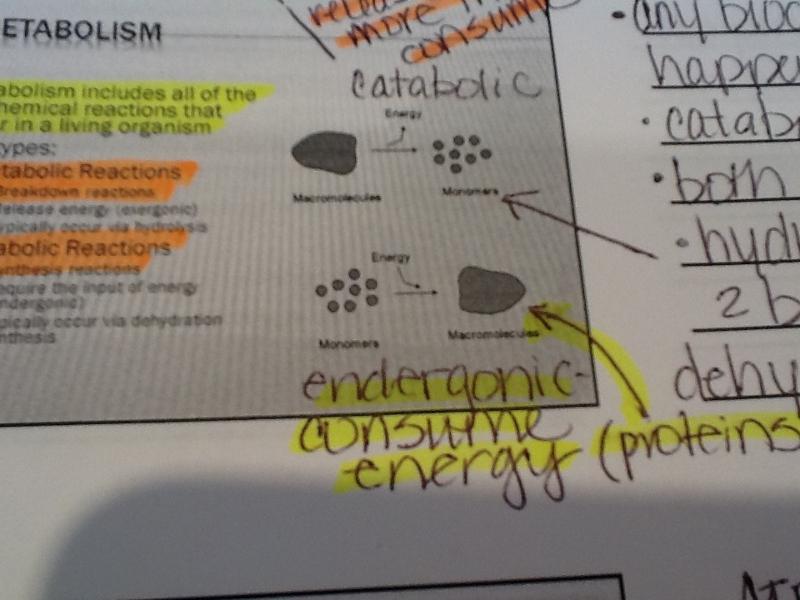 ETABOLISM
abolism includes all of the
hemical reactions that
r in a living organism
ypes:
tabolic Reactions
Breakdown reactions
Release energy (exergonic)
ypically occur via hydrolysis
abolic Reactions
ynthesis reactions
equire the input of energy
ndergonic)
pically occur via dehydration
nthesis
more
consume
catabolic
Energy
Macromolecules
Monomers
Energy
Monomers
Macromolecules
endergonic-
consume
energy
(proteins
• any
happe
• catab
• both
• hydr
2 b
dehy